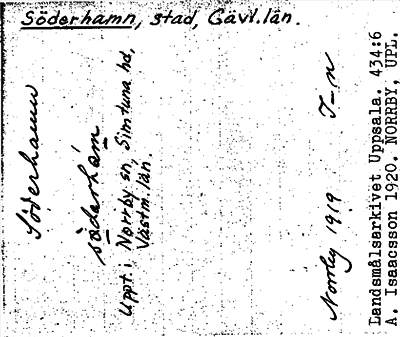 Söderhamn, stad, Gävl.län.
Söderhamn
söderham
Uppt. i Norrby sn, Simtuna hd,
Västm. län.
Norrby 1919 I-n
Landsmålsarkivet Uppsala. 434:6
A. Isaacsson 1920. NORRBY, UPL.